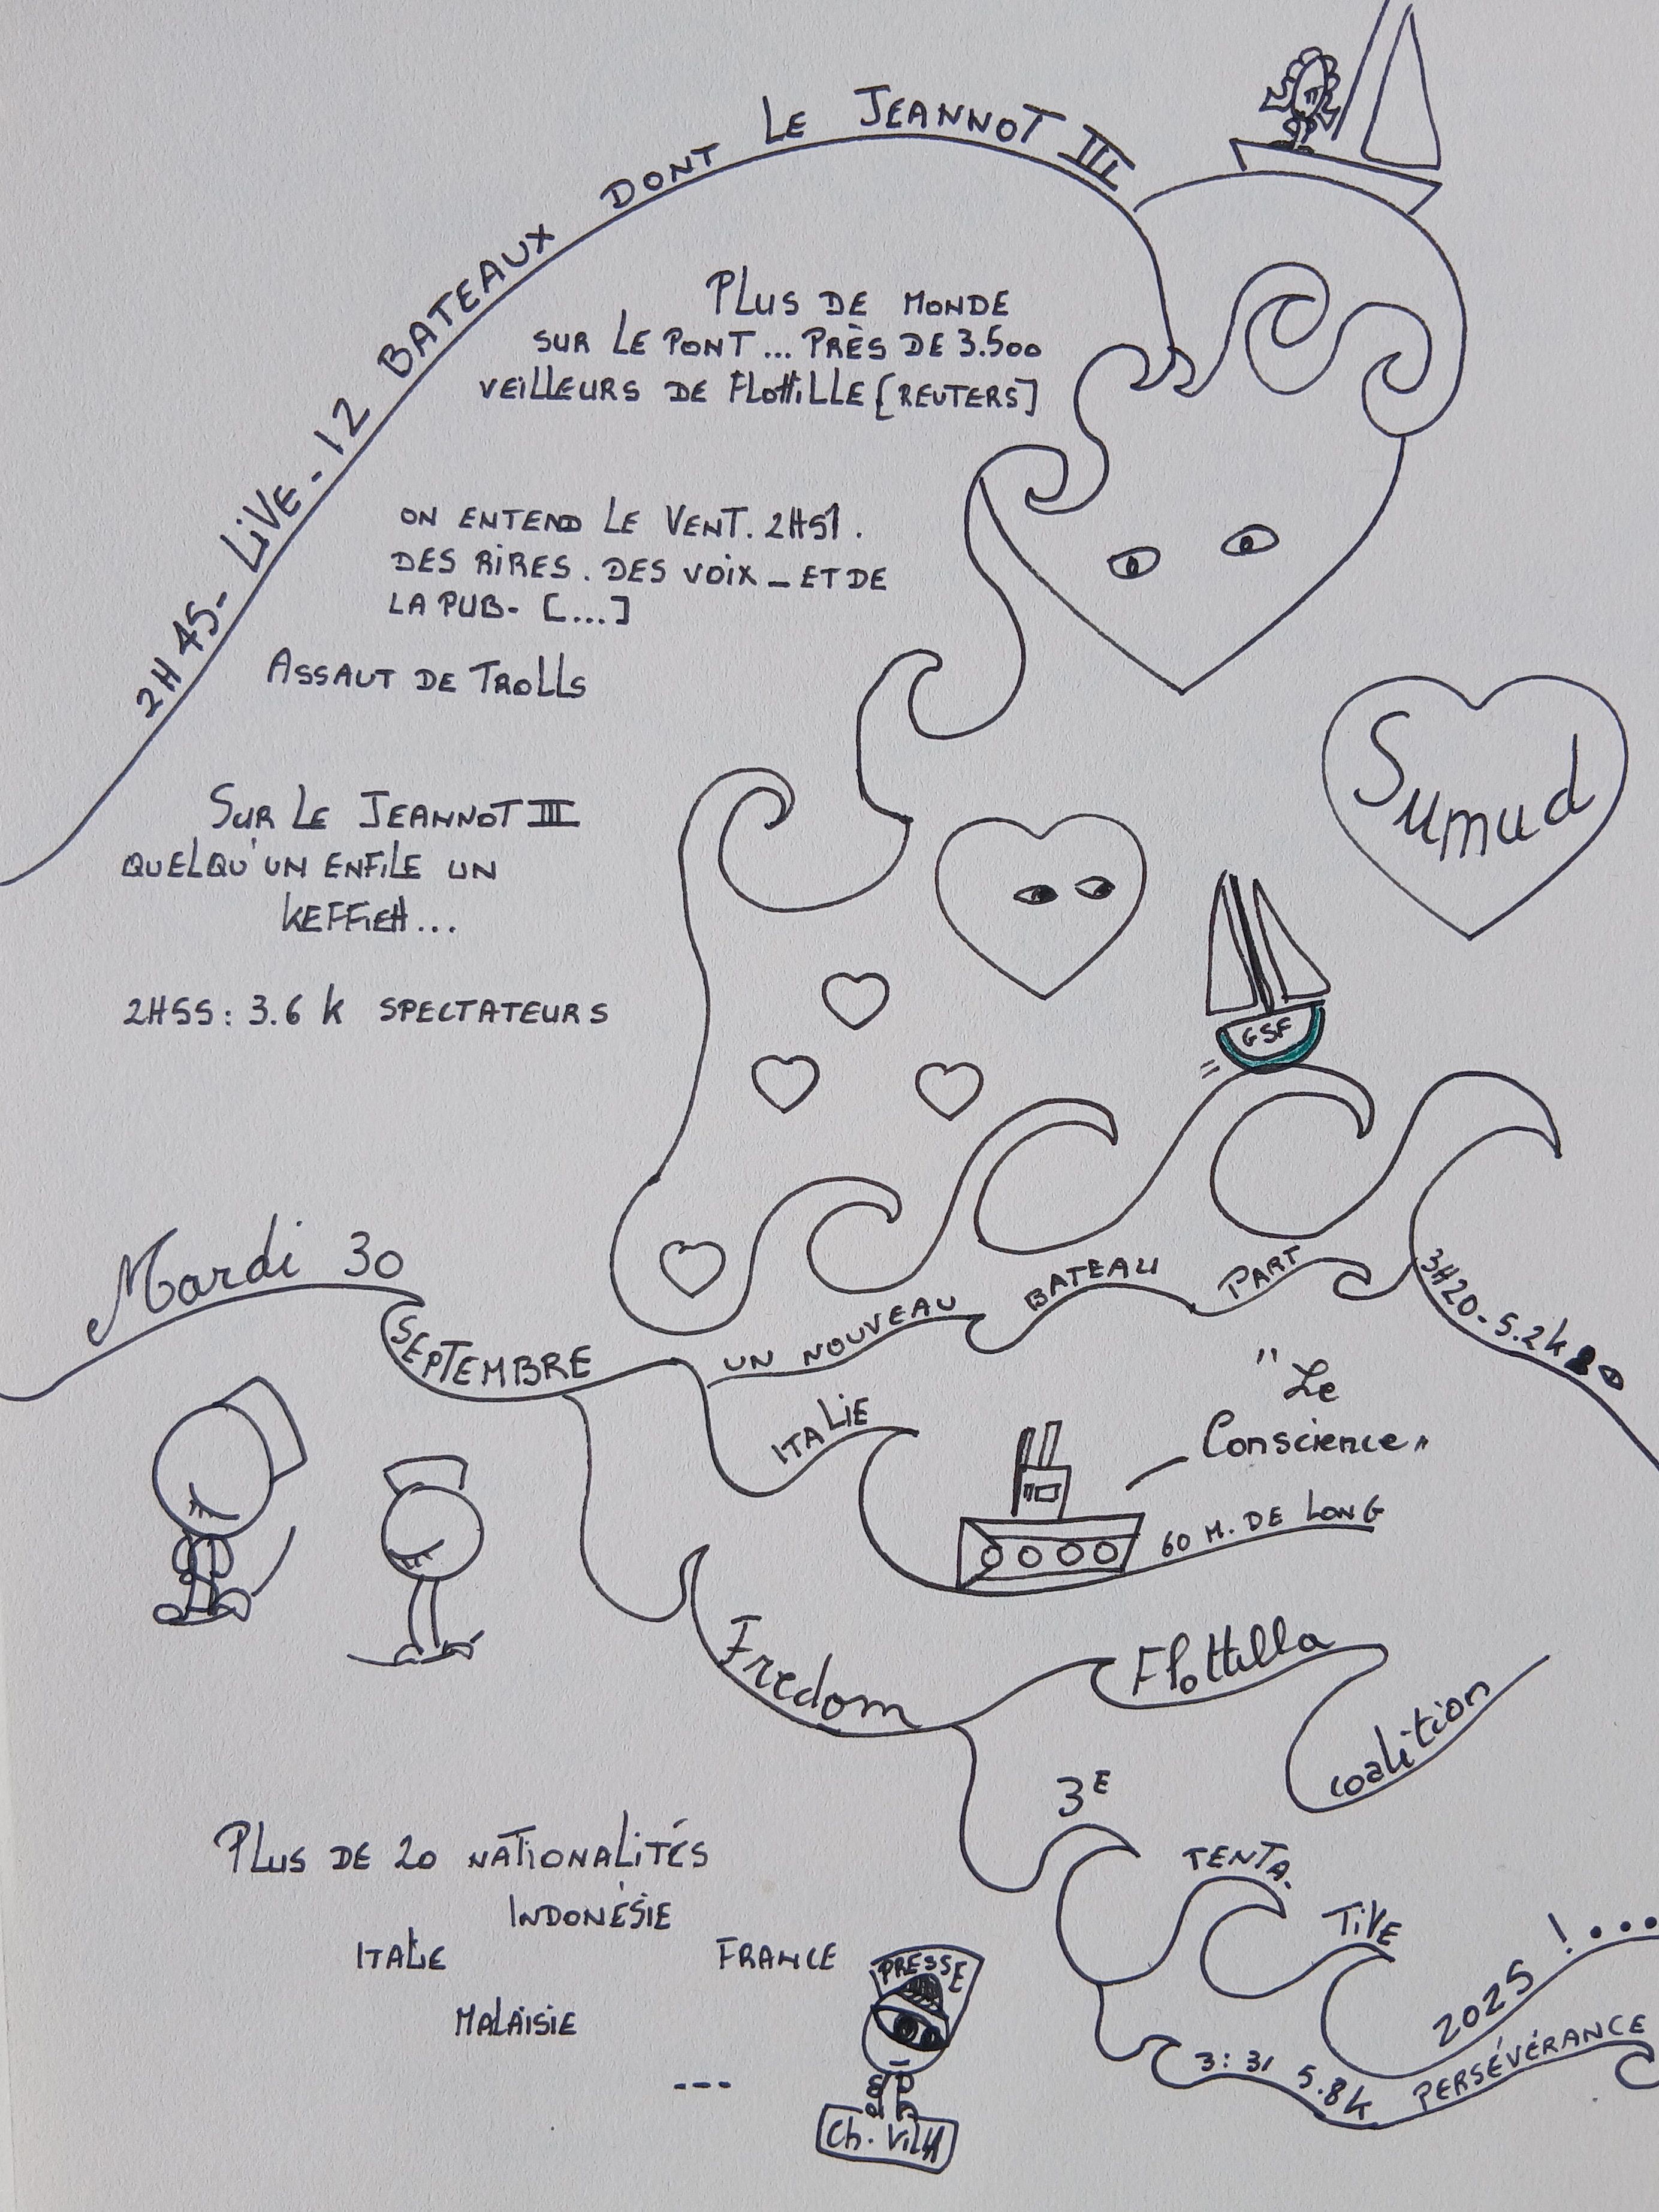 2H45- LIVE - 12 BATEAUX DONT LE JEANNOT III
PLUS DE MONDE
SUR LE PONT ... PRÈS DE 3.500
VEILLEURS DE FLOTTILLE [REUTERS]
ON ENTEND LE VENT. 2H51.
DES RIRES. DES VOIX _ ET DE
LA PUB- [...]
ASSAUT DE TROLLS
SUR LE JEANNOT III
QUELQU'UN ENFILE UN
KEFFIEH...
2H55: 3.6 k SPECTATEURS
Sumud
GSF
Mardi 30
SEPTEMBRE
UN NOUVEAU BATEAU PART
3H20-5.2k
ITALIE
"Le
Conscience"
60 M. DE LONG
Fredom
Flottilla
coalition
3E
TENTA.
TIVE
2025 !...
3:31 5.8k PERSÉVÉRANCE
PLUS DE 20 NATIONALITÉS
INDONÉSIE
ITALIE FRANCE
MALAISIE
---
PRESSE
Ch. VilH